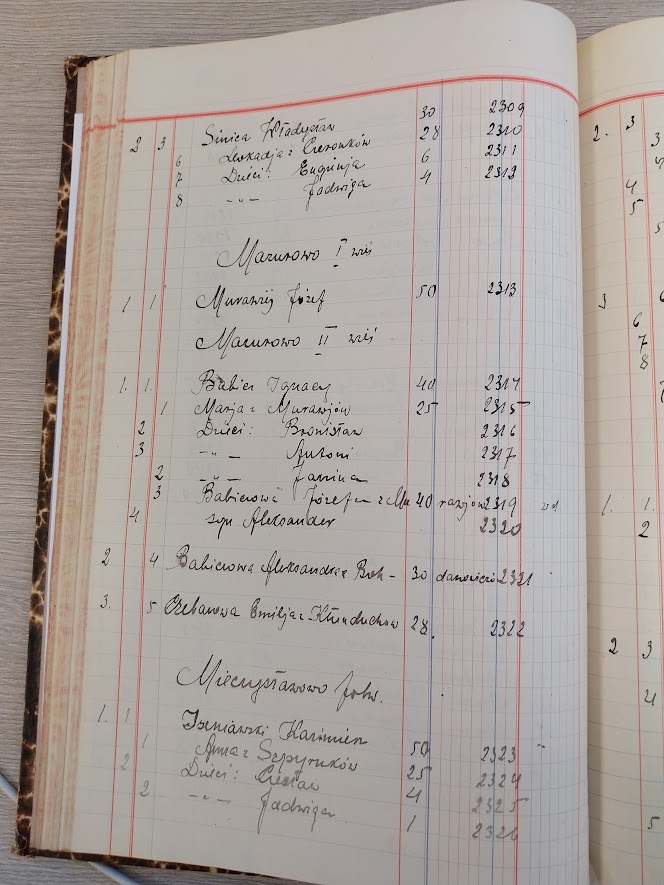 2 3 Sinica Władysław 30 2309
Leokadja z Cieronków 28 2310
6 Dzieci: Eugenja 6 2311
7 -„- Jadwiga 4 2312
8
Mazurowo I wieś
1 1 Murawiej Józef 50 2313
Mazurowo II wieś
1. 1. Babicz Ignacy 40 2314
1 Marja z Murawjów 25 2315
2 Dzieci: Bronisław 2316
3 -„- Antoni 2317
2 -„- Janina 2318
3 Babiczowa Józefa z Mu 40 rawjów 2319
4 syn Aleksander 2320
2 4 Babiczowa Aleksandra z Boh- 30 danowiczów 2321
3. 5 Emilja z 28. 2322
Mieczysławowo folw.
1. 1 Iszniawski Kazimierz 50 2323
1 Anna z Szpyruków 25 2324
2 Dzieci: Czesław 4 2325
2 -„- Jadwiga 1 2326
2. 3
3
4
5
3
6
7
8
1. 1.
2
2 3
4
5